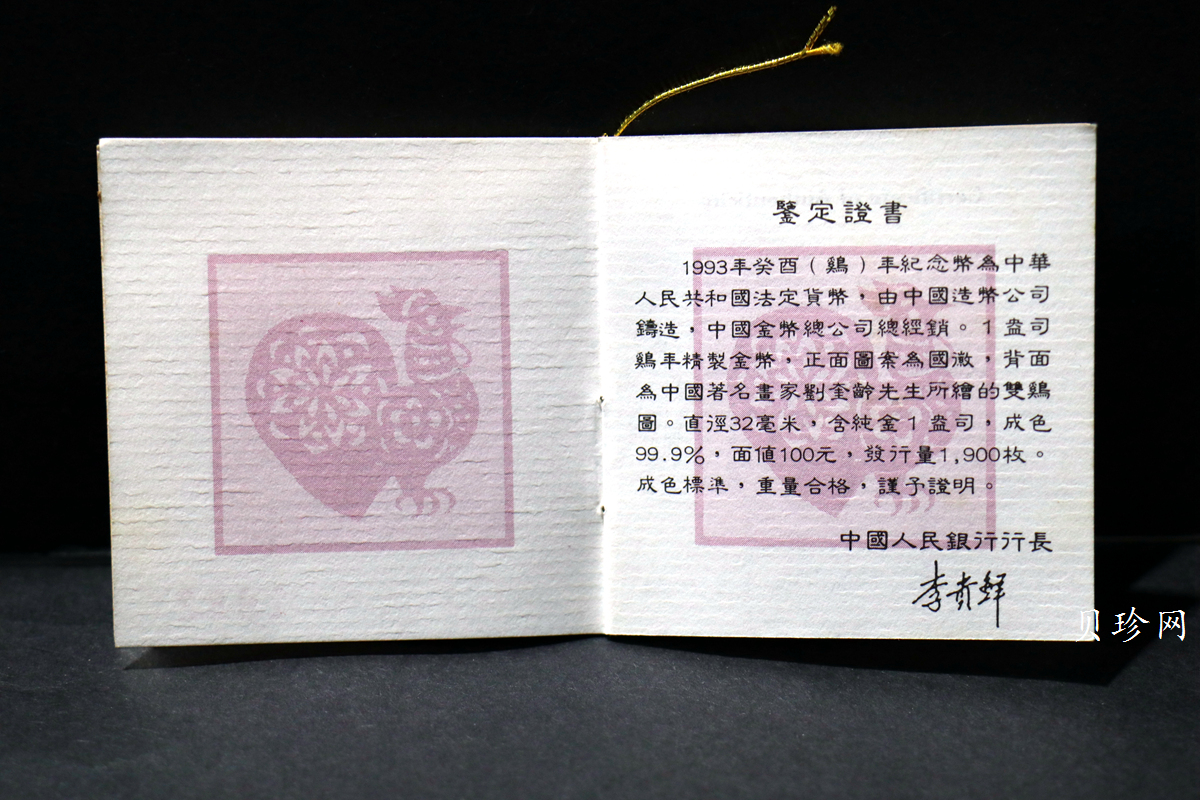 鑒定證書
1993年癸酉（鷄）年紀念幣為中華
人民共和國法定貨幣，由中國造幣公司
鑄造，中國金幣總公司總經銷。1盎司
鷄年精製金幣，正面圖案為國徽，背面
為中國著名畫家劉奎齡先生所繪的雙鷄
圖。直徑32毫米，含純金1盎司，成色
99.9%，面值100元，發行量1,900枚。
成色標準，重量合格，謹予證明。
中國人民銀行行長
李貴鮮
贝珍网